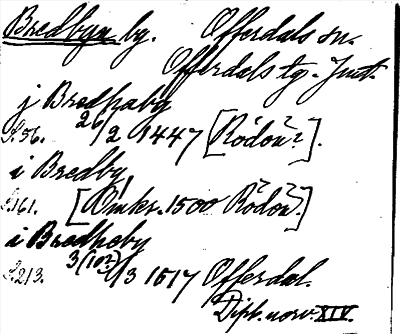 Bredbyn by. Offerdals sn.
Offerdals tg. Jmt.
j Bredhaby
S. 56. 26/2 1447 [Rödön?].
i Bredby,
S. 161. [Omkr. 1500 Rödön?.]
i Bredheby
S. 213. 3(10?)/3 1517 Offerdal.
Dipl. norv. XIV.